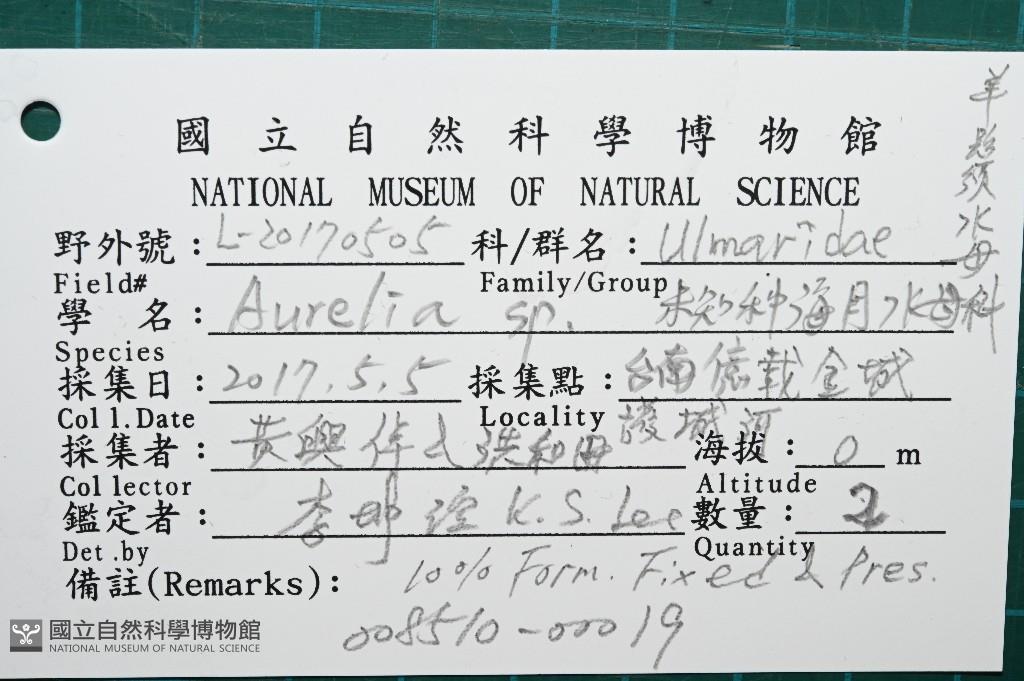 國立自然科學博物館
NATIONAL MUSEUM OF NATURAL SCIENCE
野外號：L-20170505 科/群名：Ulmaridae
羊鬚水母科
Field# Family/Group
學 名：Aurelia sp. 未知种海月水母
Species
採集日：2017.5.5 採集點：台南億載金城
Coll.Date Locality
護城河
採集者：黃興倬 洪和田 海拔：0 m
Collector Altitude
鑑定者：李坤瑄 K.S. Lee 數量：2
Det.by Quantity
備註(Remarks)：10% Form. Fixed & Pres.
008510-00019
國立自然科學博物館
NATIONAL MUSEUM OF NATURAL SCIENCE